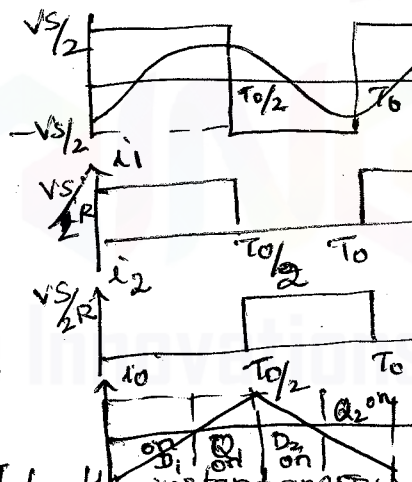 VS/2
T0/2 T0
-VS/2
i1
VS/2R
T0/2 T0
i2
VS/2R
T0/2 T0
i0
Q2 on
on D1 Q on D2 on
Innovation